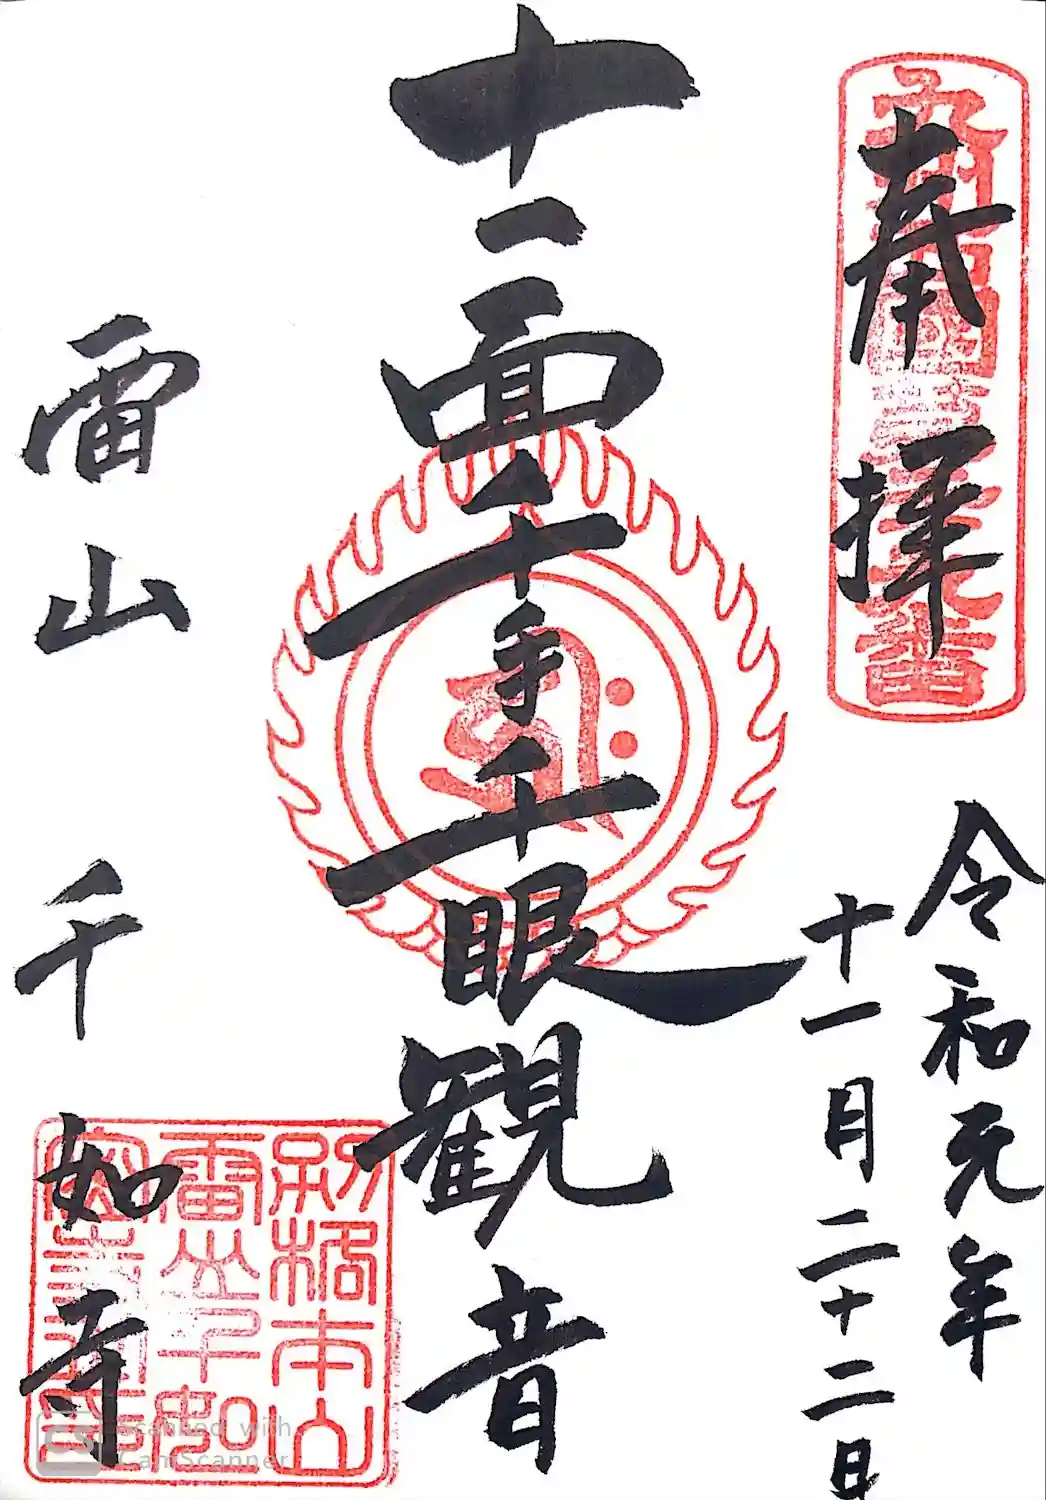 奉拝
令和元年
十一月二十二日
十一面千手千眼観音
雷山
千如寺
別格本山
雷山千如
Scanned with
CamScanner